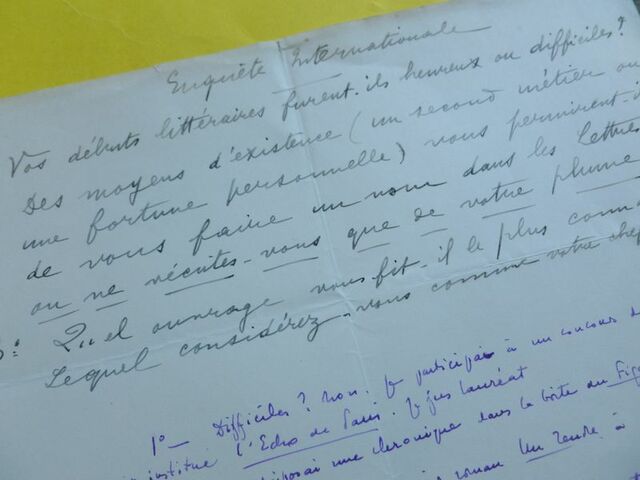 Enquête Internationale
Vos débuts littéraires furent-ils heureux ou difficiles?
Des moyens d'existence (un second métier ou
une fortune personnelle) vous permirent-i
de vous faire un nom dans les Lettres
ou ne vécûtes-vous que de votre plume
3°: Quel ouvrage vous fit-il le plus conna
Lequel considérez-vous comme votre chef
1°— Difficiles? non. Je participai à un concours d
institué l'Echo de Paris. Je fus lauréat
posai une chronique dans la boîte du Figa
roman Un rendre à